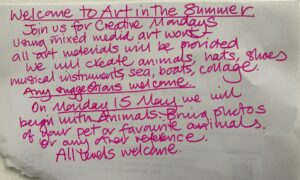 Welcome to Art in the Summer
Join us for Creative Mondays
Using mixed media art work
all art materials will be provided
We will create animals, hats, shoes
musical instruments, sea, boats, collage.
Any suggestions welcome.
On Monday 15 May we will
begin with Animals. Bring photos
of your pet or favourite animals.
or any other reference.
All levels welcome.